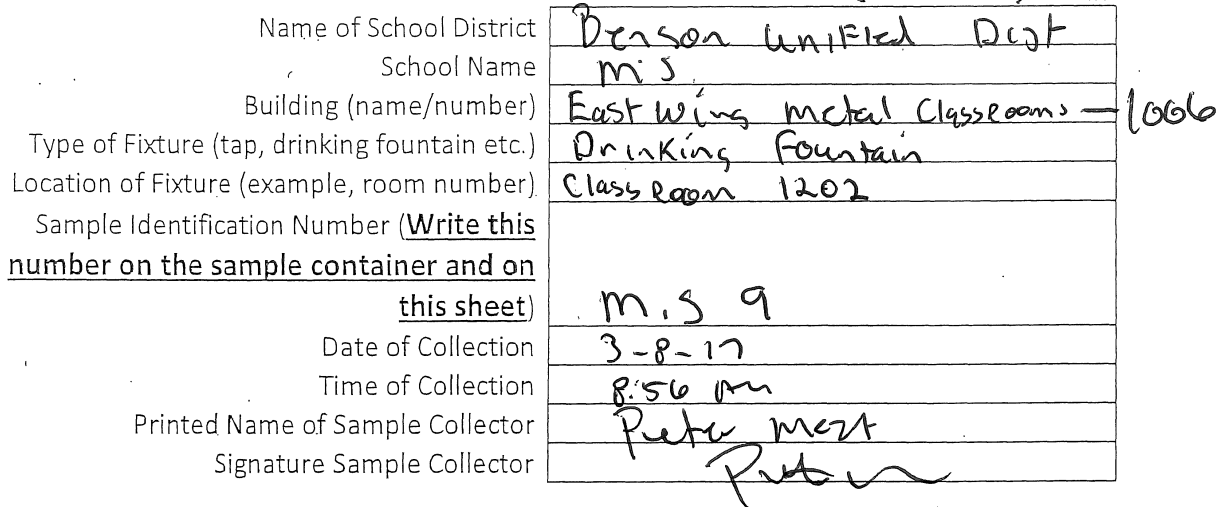 Name of School District Benson Unified Dist
School Name M S
Building (name/number) East Wing Metal Classrooms — 1006
Type of Fixture (tap, drinking fountain etc.) Drinking Fountain
Location of Fixture (example, room number) Class Room 1202
Sample Identification Number (Write this
number on the sample container and on
this sheet) M.S 9
Date of Collection 3-8-17
Time of Collection 8:56 AM
Printed Name of Sample Collector
Signature Sample Collector